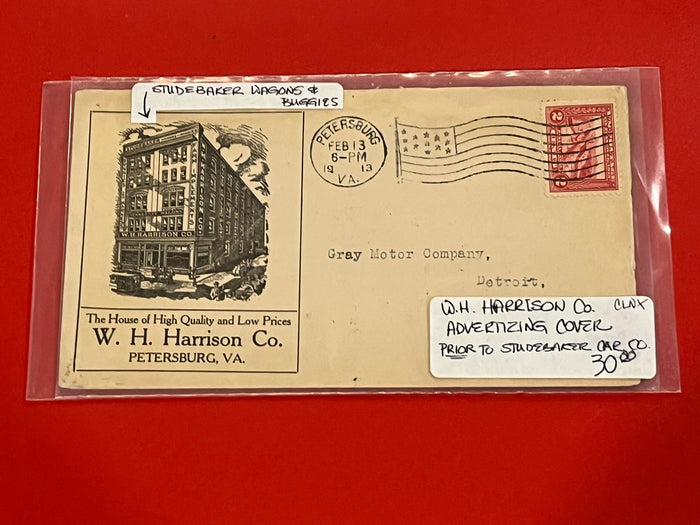 STUDEBAKER WAGONS &
BUGGIES
STUDEBAKER
W. H. HARRISON CO.
The House of High Quality and Low Prices
W. H. Harrison Co.
PETERSBURG, VA.
PETERSBURG
FEB 13
6-PM
19 13
VA.
2 2
Gray Motor Company,
Detroit,
W.H. HARRISON CO. CLNX
ADVERTIZING COVER
PRIOR TO STUDEBAKER CAR CO.
30 00